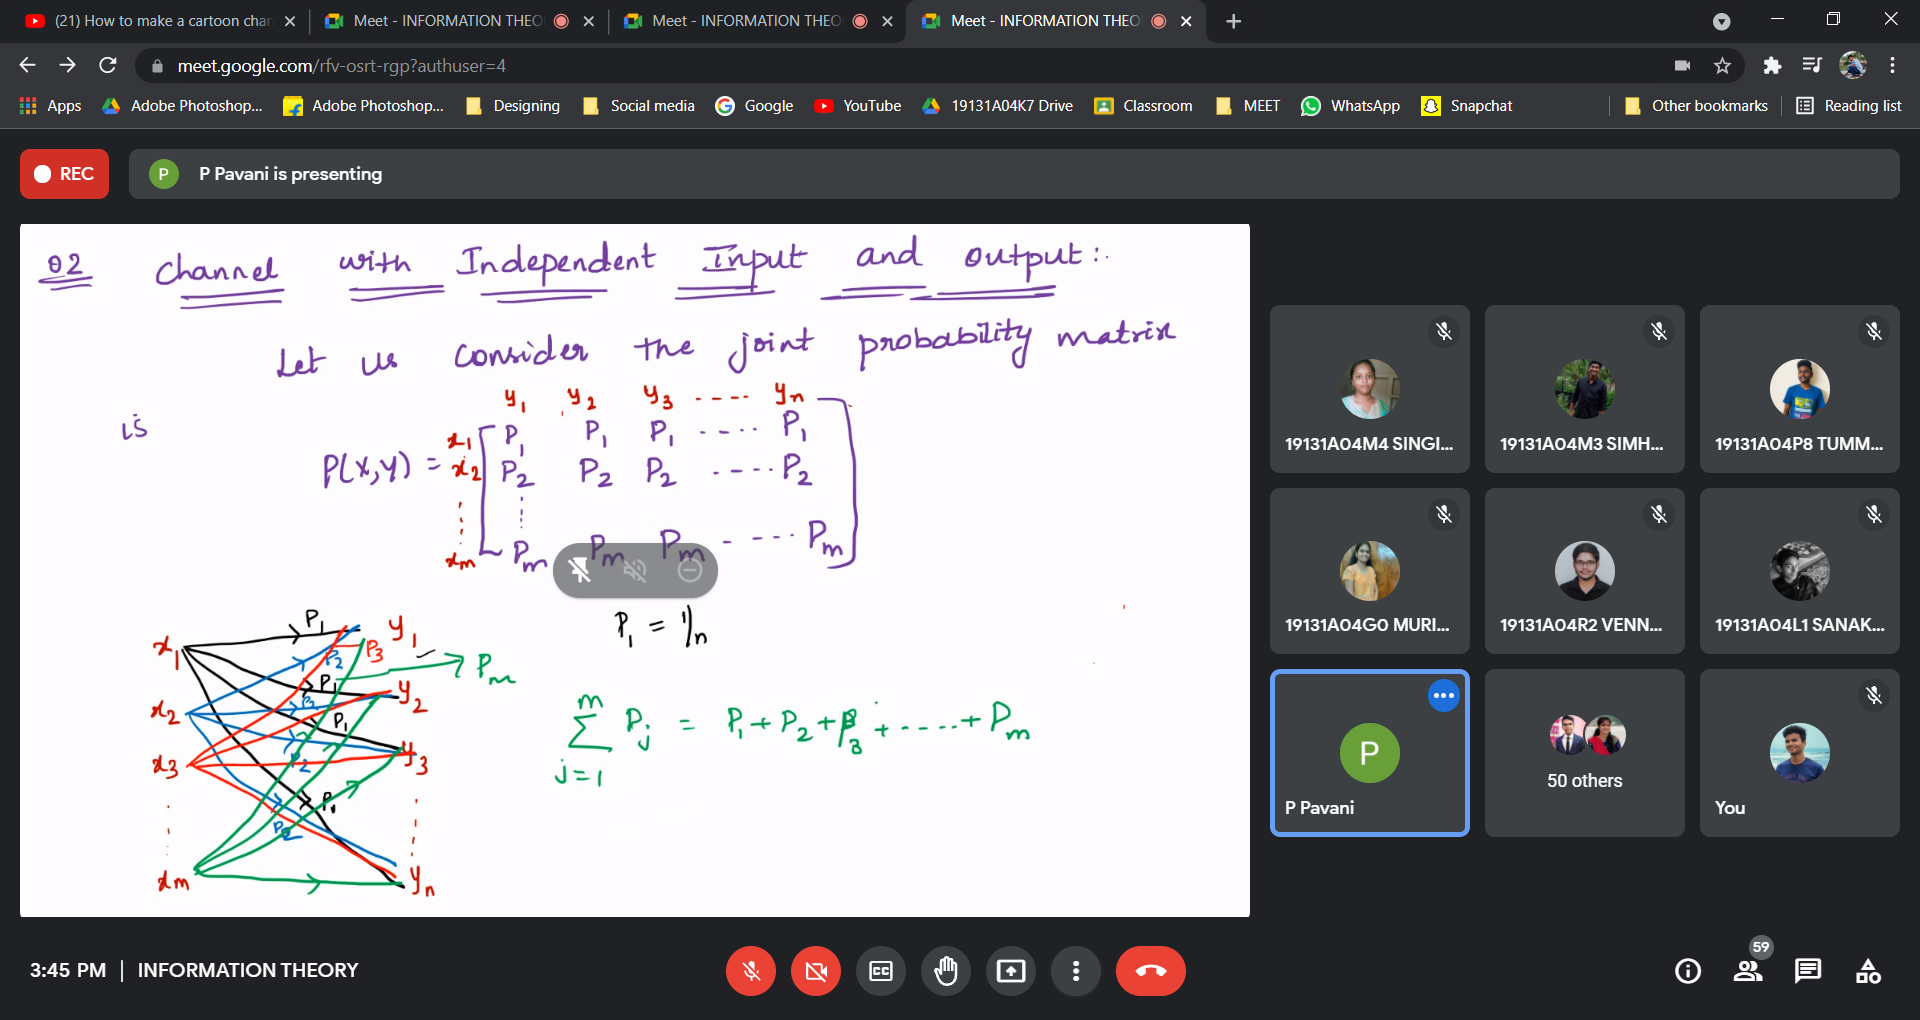 (21) How to make a cartoon char
Meet - INFORMATION THEO
Meet - INFORMATION THEO
Meet - INFORMATION THEO
meet.google.com/rfv-osrt-rgp?authuser=4
Apps
Adobe Photoshop...
Adobe Photoshop...
Designing
Social media
Google
YouTube
19131A04K7 Drive
Classroom
MEET
WhatsApp
Snapchat
Other bookmarks
Reading list
REC
P
P Pavani is presenting
02 Channel with Independent Input and output:
Let us consider the joint probability matrix
is
y1 y2 y3 ---- yn
x1 P1 P1 P1 ---- P1
P(x,y) = x2 P2 P2 P2 ---- P2
xm Pm Pm Pm ---- Pm
P1 = 1/n
x1 P1 y1
P2 P3
Pm
P1
x2 P2 y2
P1
x3 P2 y3
P1
P2
xm yn
m
∑ Pj = P1 + P2 + P3 + ---- + Pm
j=1
19131A04M4 SINGI...
19131A04M3 SIMH...
19131A04P8 TUMM...
19131A04G0 MURI...
19131A04R2 VENN...
19131A04L1 SANAK...
P
P Pavani
50 others
You
3:45 PM | INFORMATION THEORY
CC
59